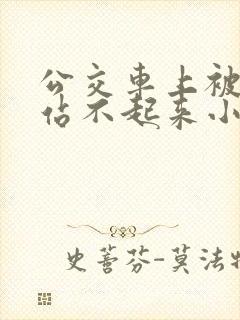 公交車上被
佔不起来小
史蓍芬-莫法特